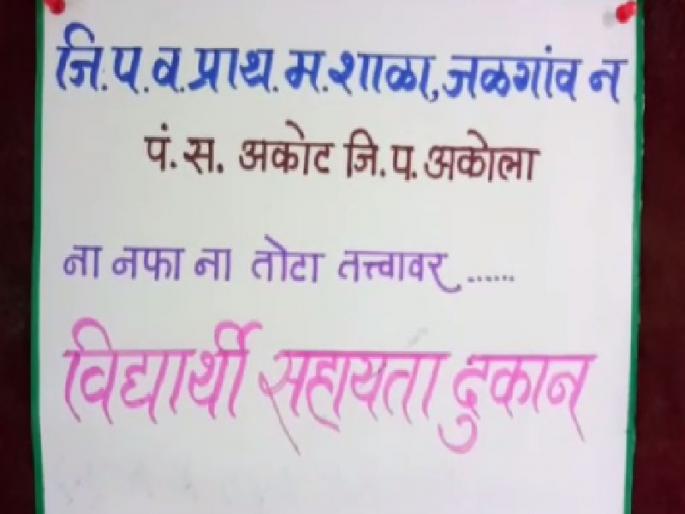 जि.प.व.प्राथ.म.शाळा,जळगांव न
पं.स. अकोट जि.प.अकोला
ना नफा ना तोटा तत्त्वावर ......
विद्यार्थी सहायता दुकान